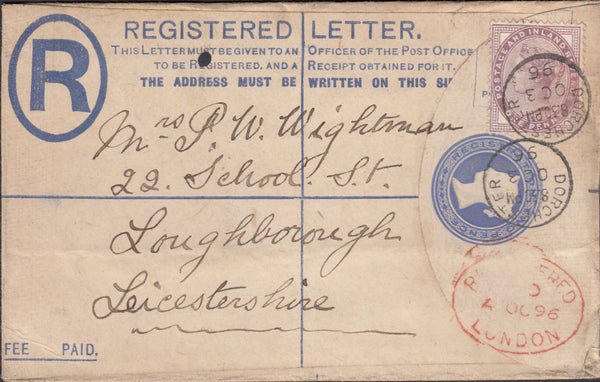 REGISTERED LETTER.
THIS LETTER MUST BE GIVEN TO AN OFFICER OF THE POST OFFICE
TO BE REGISTERED, AND A RECEIPT OBTAINED FOR IT.
THE ADDRESS MUST BE WRITTEN ON THIS SI
R
POSTAGE AND INLAND
DORCH
OC 3
96
Mrs P. W. Wightman
22. School. St.
REGISTRATION
DORCH
Loughborough
Leicestershire
RED
D
4 OC 96
LONDON
FEE PAID.